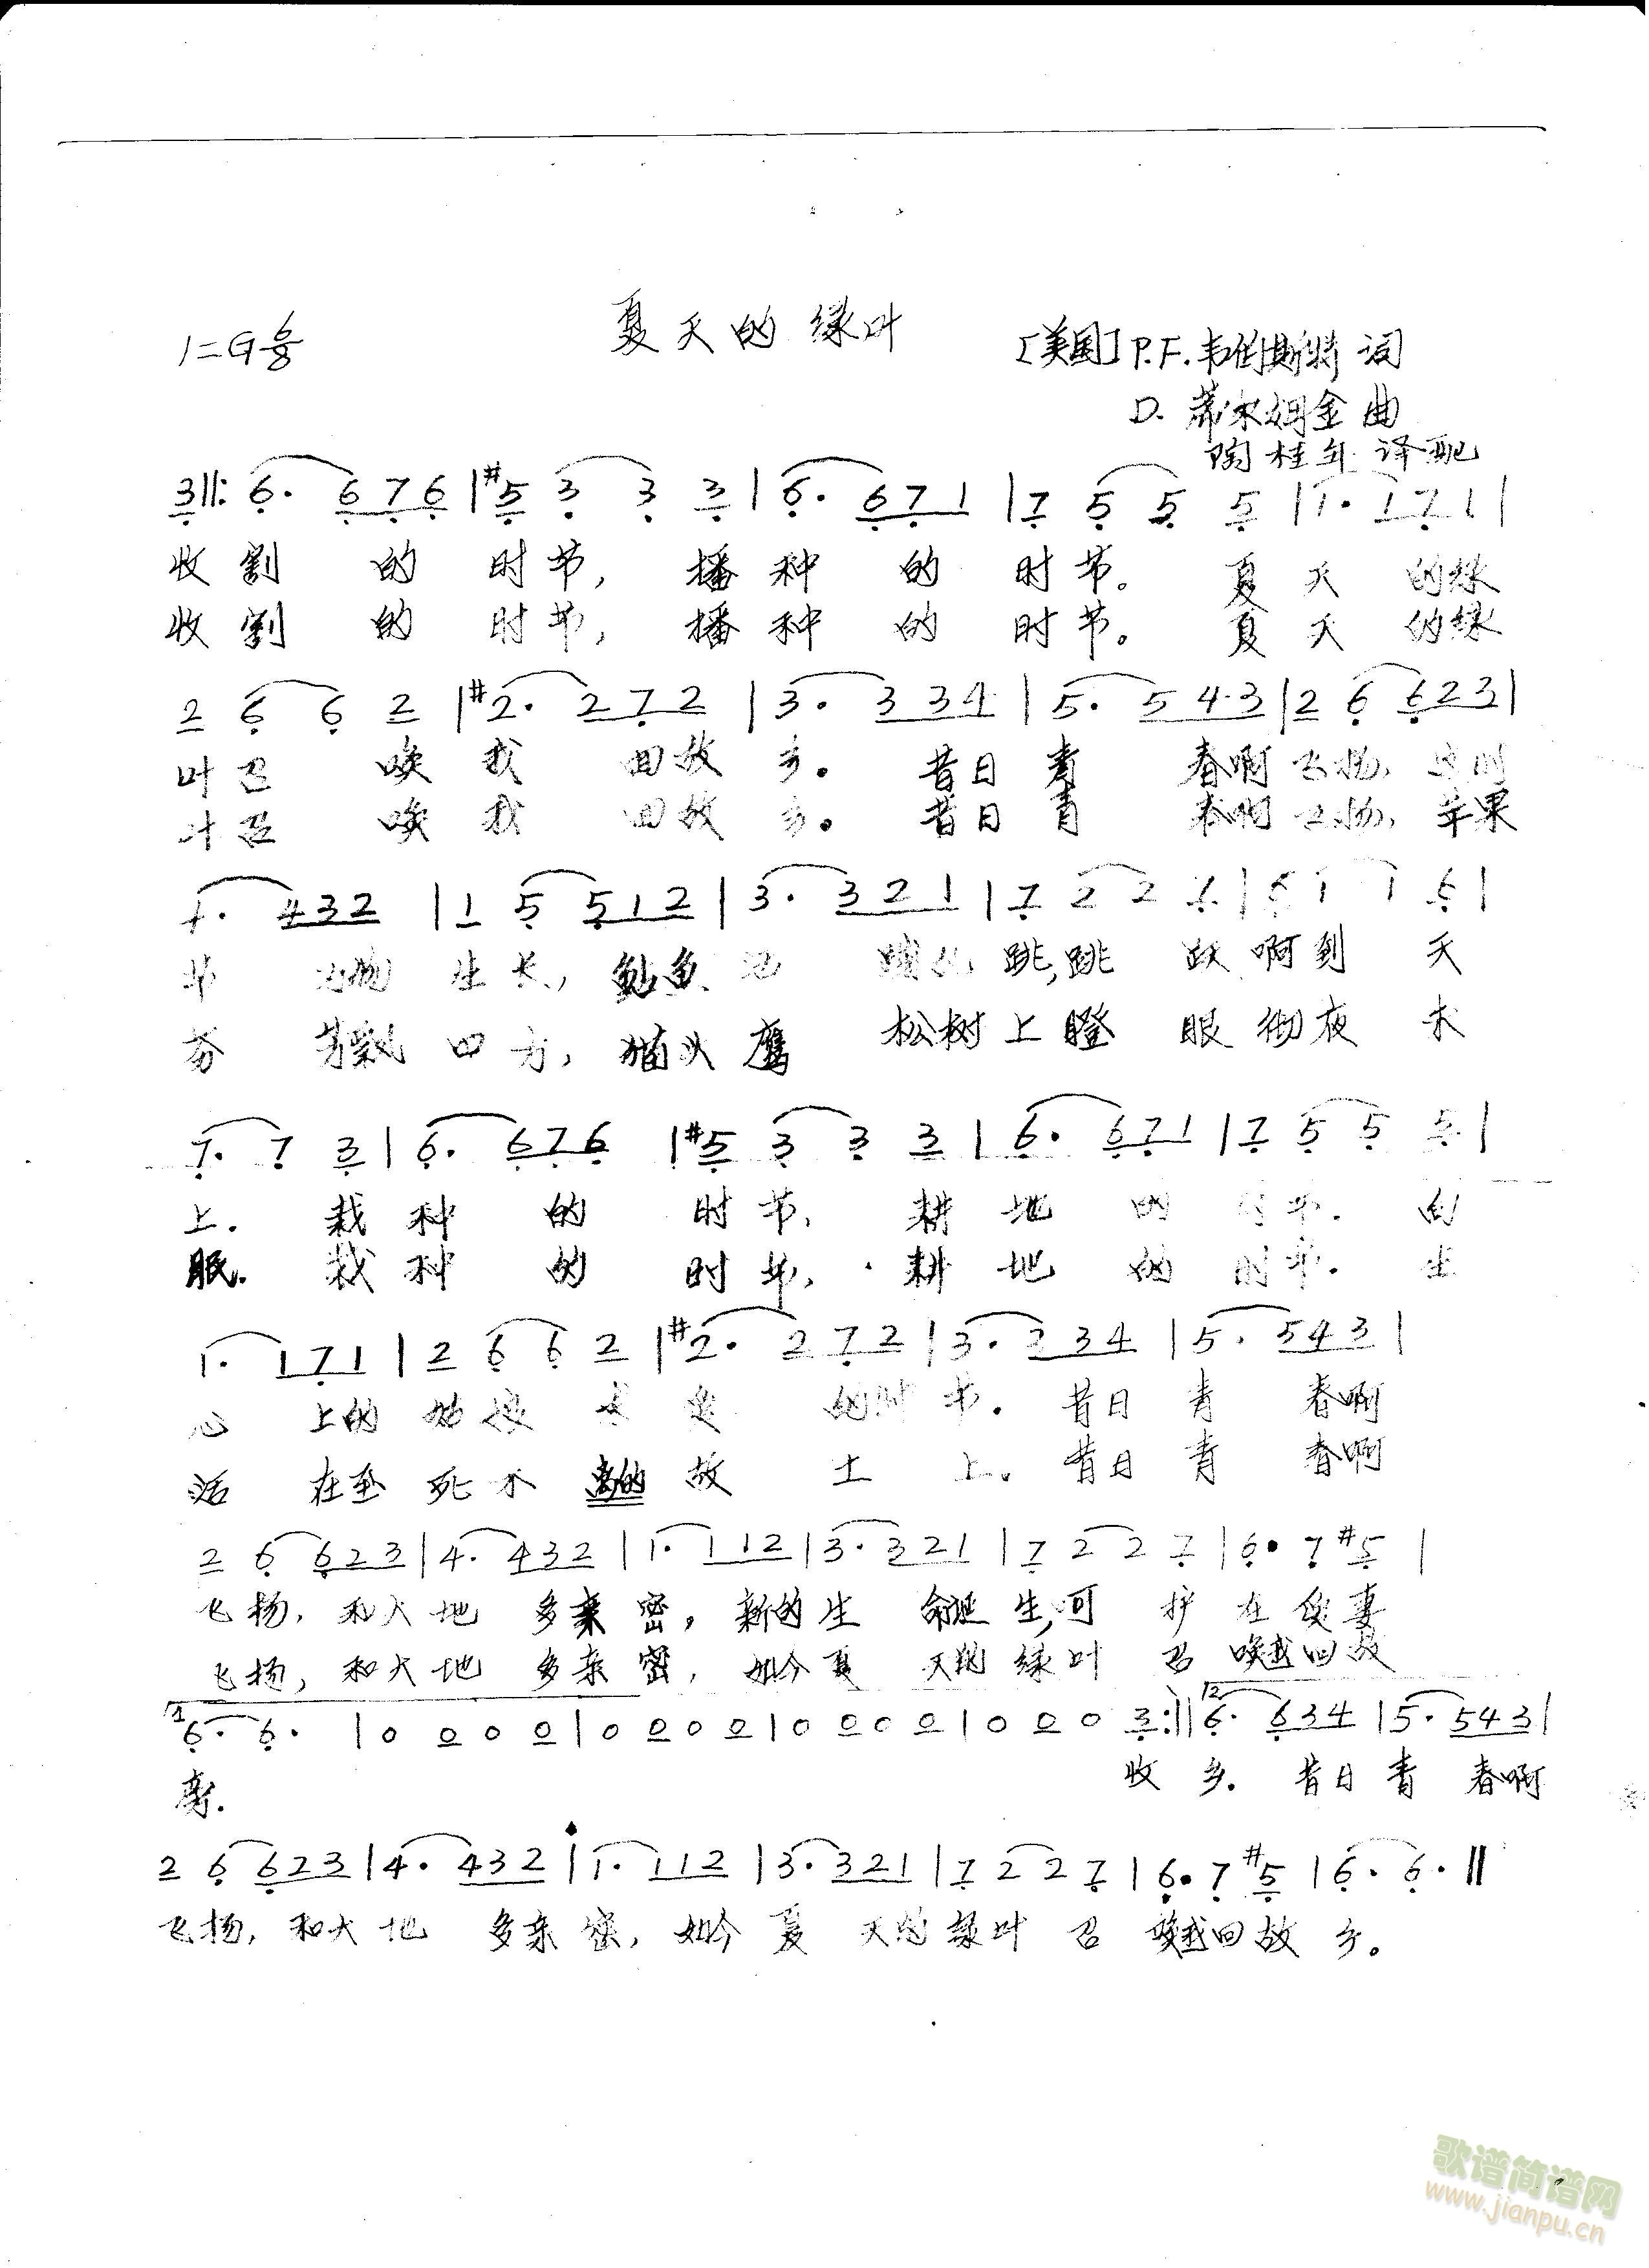 夏天的绿叶
1=G 6/8
[美国]P.F.韦伯斯特 词
D.蒂尔姆金 曲
陶桂年 译配
3‖: 6. 6 7 6 | #5 3 3 3 | 6. 6 7 1 | 7 5 5 5 | 1. 1 7 1 |
收割的时节,播种的时节。夏天的绿
收割的时节,播种的时节。夏天的绿
2 6 6 2 | #2. 2 7 2 | 3. 3 3 4 | 5. 5 4 3 | 2 6 6 2 3 |
叶召唤我回故乡。昔日青春啊飞扬,
叶召唤我回故乡。昔日青春啊飞扬,苹果
4. 4 3 2 | 1 5 5 1 2 | 3. 3 2 1 | 7 2 2 7 | 6 1 1 6 |
节万物生长,鲇鱼 跳,跳跃啊到天
芬芳飘四方,猫头鹰松树上瞪眼彻夜未
7. 7 3 | 6. 6 7 6 | #5 3 3 3 | 6. 6 7 1 | 7 5 5 5 |
上.栽种的时节,耕地的时节.向
眠.栽种的时节,耕地的时节.生
1. 1 7 1 | 2 6 6 2 | #2. 2 7 2 | 3. 2 3 4 | 5. 5 4 3 |
心上的姑娘求爱的时节.昔日青春啊
活在至死不离的故土上。昔日青春啊
2 6 6 2 3 | 4. 4 3 2 | 1. 1 1 2 | 3. 3 2 1 | 7 2 2 7 | 6. 7 #5 |
飞扬,和大地多亲密,新的生命诞生,呵护在 妻
飞扬,和大地多亲密,如今夏天的绿叶召唤我回故
1 6. 6. | 0 0 0 0 | 0 0 0 0 | 0 0 0 0 | 0 0 0 3 :‖ 2 6. 6 3 4 | 5. 5 4 3 |
旁. 收 乡.昔日青春啊
2 6 6 2 3 | 4. 4 3 2 | 1. 1 1 2 | 3. 3 2 1 | 7 2 2 7 | 6. 7 #5 | 6. 6. ‖
飞扬,和大地多亲密,如今夏天的绿叶召唤我回故乡。
歌谱简谱网
www.jianpu.cn